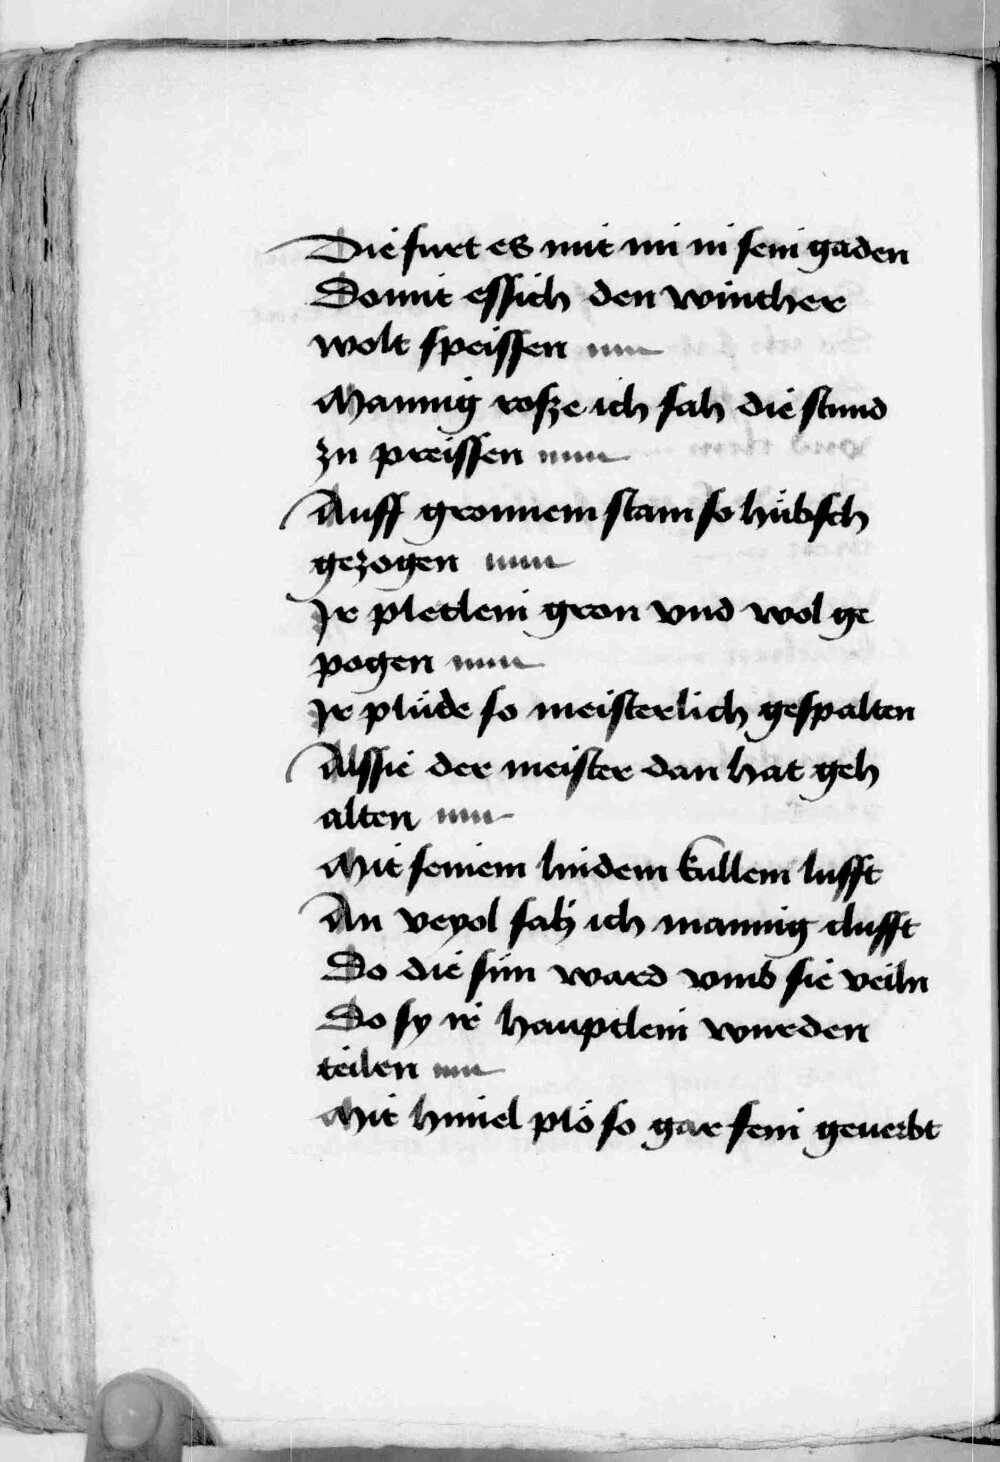 Die furt es mit im in sein gaden
Domit essich den winther
wolt speissen
Mannig rosze ich sah die stund
zu preissen
Auff gronnem stam so hübsch
gezogen
Jr pletlein gron vnd wol ge
pogen
Jr plüde so meisterlich gespalten
Alssie der meister dan hat geh
alten
Mit seinem lindem kullem lufft
An veyol sah ich mannig clufft
Do die sun ward vmb sie veiln
Do sy ir hauptlein wurden
teilen
Mit himel plo so gar fein geuerbt